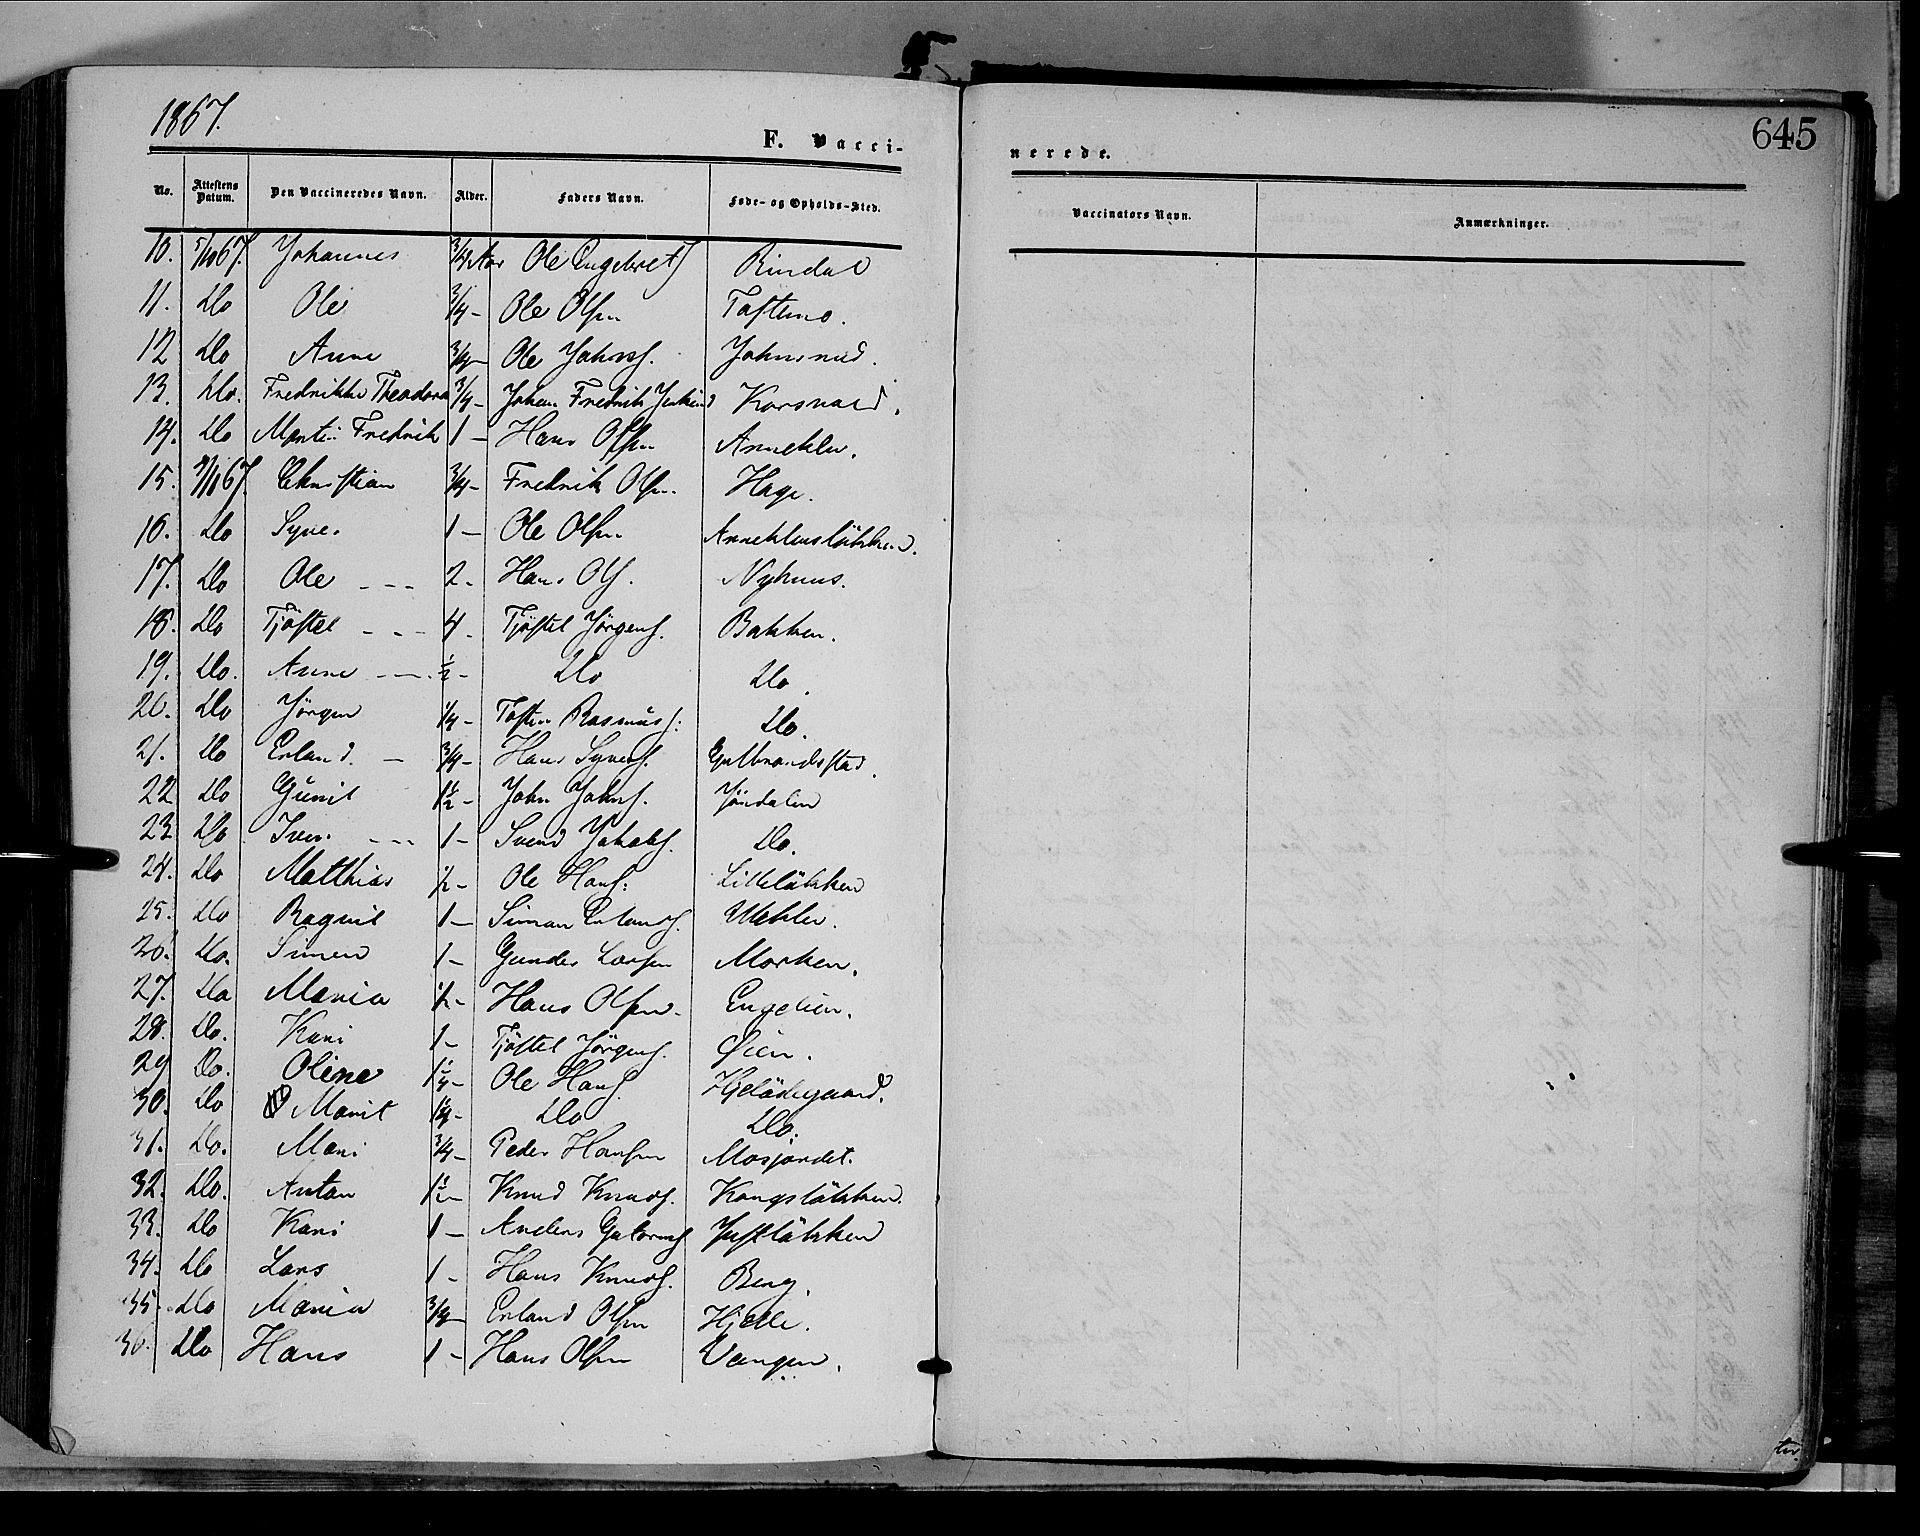 1867.
F. Vacci-
No. Attestens Datum. Den Vaccineredes Navn. Alder. Faders Navn. Føde- og Opholds-Sted.
10. 5/10 67. Johannes 3/4 Aar Ole Engebret Rindal
11. Do Ole 3/4 - Ole Olsen Toftemo.
12 Do Anne 3/4 - Ole Johns. Johnsrud.
13. Do. Fredrikke Theodora 3/4 - Johan Fredrik Korsvold.
14. Do Martin Fredrik 1 - Hans Olsen Anneklev.
15. 67. Christian 3/4 - Fredrik Olsen. Hage.
16. Do Syver 1 - Ole Olsen Anneklevsløkken.
17. Do Ole 2 - Hans Ols. Nyhuus.
18. Do Tjøstel 4 - Tjøstel Jørgens. Bakken.
19. Do. Anne 1/2 - Do Do.
20. Do Jørgen 1/4 - Rasmus. Do.
21. Do Erland. 3/4 - Hans Syvers. Gulbrandsstad.
22 Do Gunil 1 1/2 - John Johns. Jøndalen
23 Do Iver. 1 - Svend Jakobs. Do.
24. Do Matthias 1/2 - Ole Hans. Lilleløkken
25. Do Ragnil 1 - Simon Erlands. Uleklev.
26. Do. Simen 1 - Gunder Larsen Morken.
27. Do Maria 1/2 - Hans Olsen. Engelien.
28. Do. Kari 1 - Tjøstel Jørgens. Øien.
29 Do. Oline 1 1/4 - Ole Hans. Hjelødegaard.
30. Do Marit 1 1/4 - Do Do.
31. Do. Mari 3/4 - Peder Hansen Mosjordet.
32. Do. Anton 1 1/2 - Knud Knuds. Kongsløkken.
33. Do Kari 1 - Anders Gutorms Juftløkken
34. Do Lars 1 - Hans Knuds. Berg.
35. Do Maria 3/4 - Erland Olsen Hjelle.
36. Do Hans 1 - Hans Olsen Vangen.
645
nerede.
Vaccinators Navn. Anmærkninger.